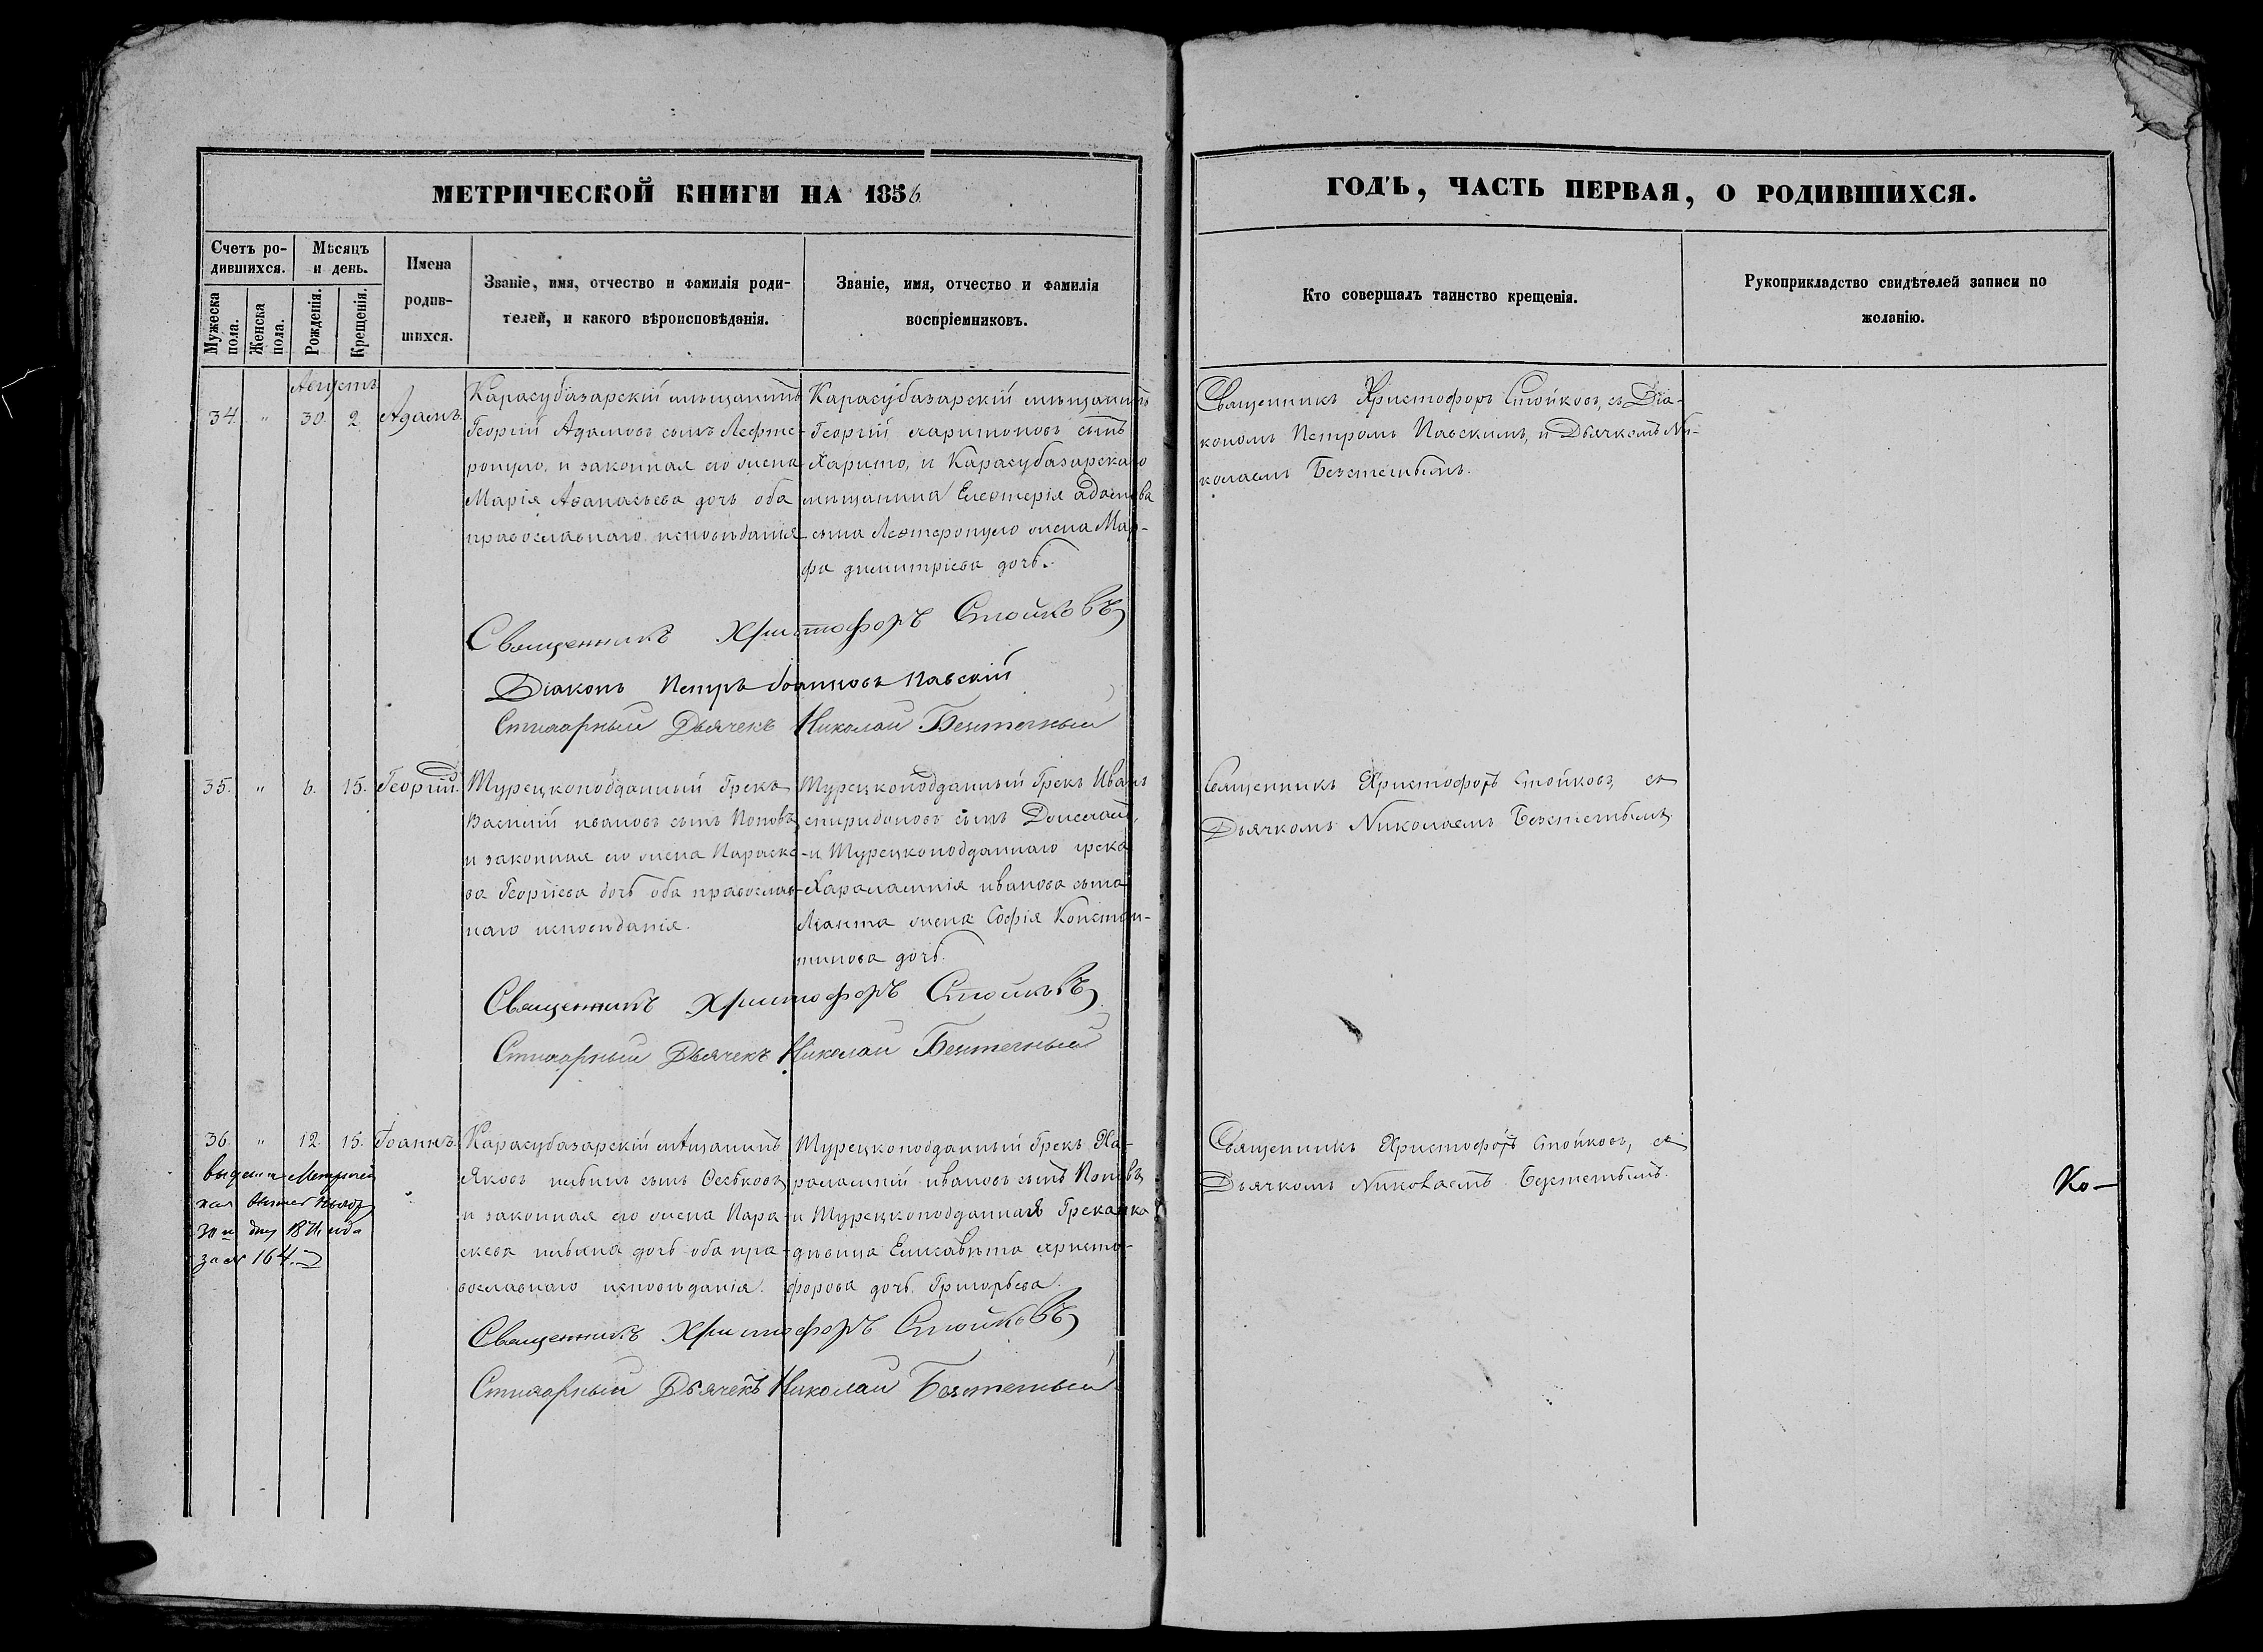 МЕТРИЧЕСКОЙ КНИГИ НА 1856
Счетъ ро-
дившихся.
Мѣсяцъ
и день.
Имена
родив-
шихся.
Званіе, имя, отчество и фамилія роди-
телей, и какого вѣроисповѣданія.
Званіе, имя, отчество и фамилія
воспріемниковъ.
Мужеска
пола.
Женска
пола.
Рожденія.
Крещенія.
Августъ
34. " 30. 2. Адамъ.
Карасубазарскій мѣщанинъ
Георгій Адамовъ сынъ Лефте-
ропуло, и законная его жена
Марія Аѳанасьева дочь оба
православнаго исповѣданія
Карасубазарскій мѣщанинъ
Георгій харитоновъ сынъ
Харито, и Карасубазарскаго
мѣщанина Елевтерія адамова
сына Левтеропуло жена Мар-
фа димитріева дочь.
Священникъ Христофоръ Стойковъ
Діаконъ Петръ Іоанновъ Павскій
Стихарный Дьячекъ Николай
35. " 6. 15. Георгій.
Турецкоподданный Грекъ
Василій ивановъ сынъ Поповъ
и законная его жена Параске-
ва Георгіева дочь оба православ-
наго исповѣданія.
Турецкоподданный Грекъ Иванъ
спиридоновъ сынъ
и Турецкоподданнаго грека
Харалампія иванова сына
жена Софія Констан-
тинова дочь.
Священникъ Христофоръ Стойковъ
Стихарный Дьячекъ Николай
36. " 12. 15. Іоаннъ.
Карасубазарскій мѣщанинъ
Яковъ сынъ
и законная его жена Пара-
скева дочь оба пра-
вославнаго исповѣданія.
Турецкоподданный Грекъ Ха-
ралампій ивановъ сынъ Поповъ
и Турецкоподданная Гречанка
дѣвица Елисавѣта христо-
форова дочь Григорьева.
30 1871 года
за № 164.
Священникъ Христофоръ Стойковъ
Стихарный Дьячекъ Николай
ГОДЪ, ЧАСТЬ ПЕРВАЯ, О РОДИВШИХСЯ.
Кто совершалъ таинство крещенія.
Рукоприкладство свидѣтелей записи по
желанію.
Священникъ Христофоръ Стойковъ, съ Діа-
кономъ Петромъ Павскимъ, и Дьячкомъ Ни-
колаемъ
Священникъ Христофоръ Стойковъ, съ
Дьячкомъ Николаемъ
Священникъ Христофоръ Стойковъ, съ
Дьячкомъ Николаемъ
Ко-